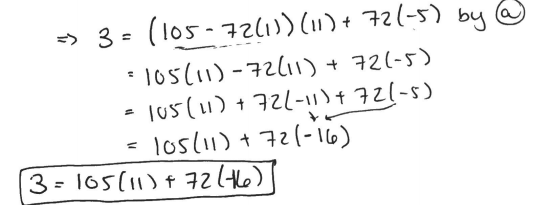 ⇒ 3 = (105 - 72(1))(11) + 72(-5) by ⓐ
= 105(11) - 72(11) + 72(-5)
= 105(11) + 72(-11) + 72(-5)
= 105(11) + 72(-16)
3 = 105(11) + 72(-16)